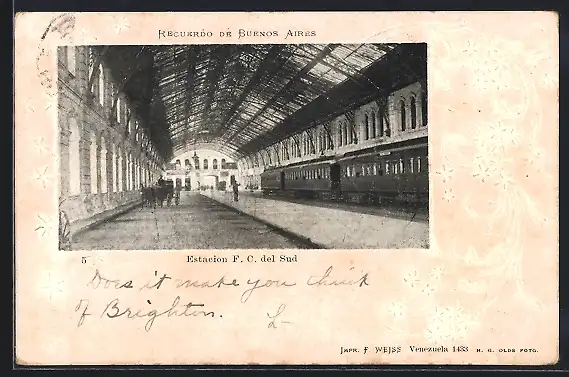 RECUERDO DE BUENOS AIRES
5 Estacion F. C. del Sud
Does it make you think
of Brighton. L-
IMPR. F WEISS Venezuela 1433 H. G. OLDS FOTO.